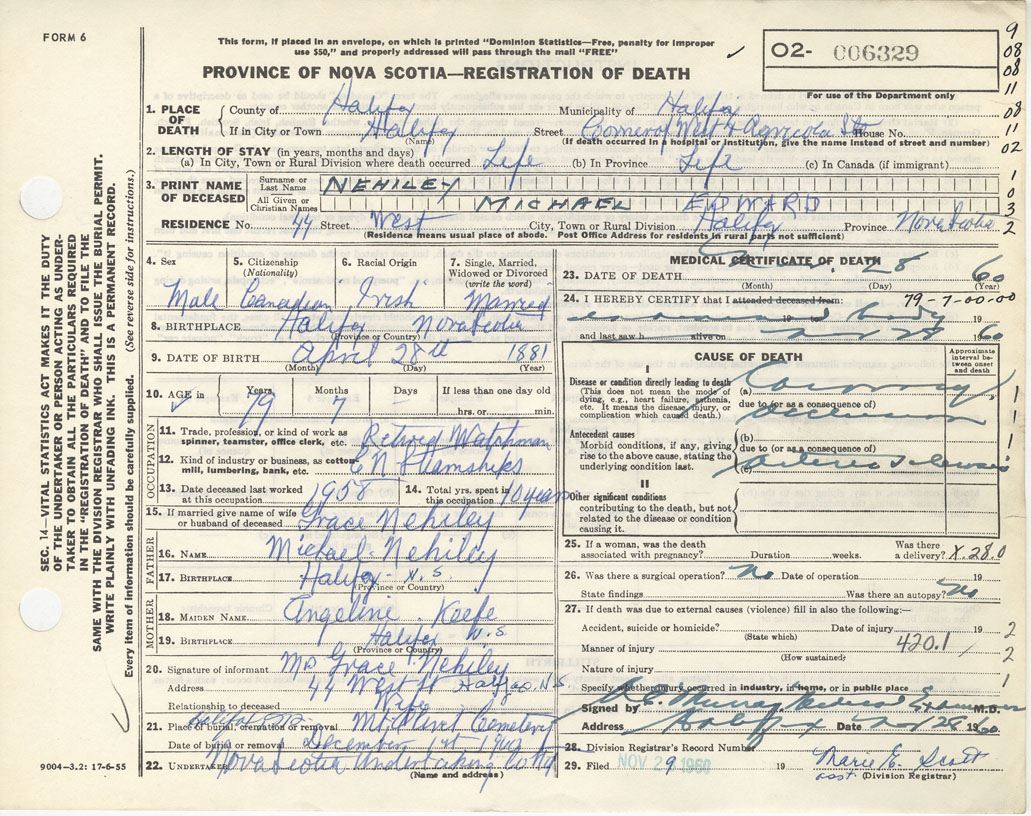 FORM 6
This form, if placed in an envelope, on which is printed "Dominion Statistics—Free, penalty for improper
use $50," and properly addressed will pass through the mail "FREE"
PROVINCE OF NOVA SCOTIA—REGISTRATION OF DEATH
O2- 006329
For use of the Department only
9
08
08
11
08
11
02
1
0
3
2
1. PLACE OF DEATH
County of Halifax
Municipality of Halifax
If in City or Town Halifax
(Name)
Street Corner of West & Agricola Sts House No.
(If death occurred in a hospital or institution, give the name instead of street and number)
2. LENGTH OF STAY (in years, months and days)
(a) In City, Town or Rural Division where death occurred Life (b) In Province Life (c) In Canada (if immigrant)
3. PRINT NAME OF DECEASED
Surname or Last Name NEHILEY
All Given or Christian Names MICHAEL EDWARD
RESIDENCE No. 44 Street West City, Town or Rural Division Halifax Province Nova Scotia
(Residence means usual place of abode. Post Office Address for residents in rural parts not sufficient)
4. Sex
Male
5. Citizenship
(Nationality)
Canadian
6. Racial Origin
Irish
7. Single, Married,
Widowed or Divorced
(write the word)
Married
8. BIRTHPLACE Halifax Nova Scotia
(Province or Country)
9. DATE OF BIRTH April 28th 1881
(Month) (Day) (Year)
10. AGE in
Years 79
Months 7
Days -
If less than one day old
hrs. or min.
OCCUPATION
11. Trade, profession, or kind of work as
spinner, teamster, office clerk, etc. Retired Watchman
12. Kind of industry or business, as cotton
mill, lumbering, bank, etc. C N Steamships
13. Date deceased last worked
at this occupation 1958
14. Total yrs. spent in
this occupation 10 years
15. If married give name of wife
or husband of deceased Grace Nehiley
FATHER
16. NAME Michael Nehiley
17. BIRTHPLACE Halifax - N.S.
(Province or Country)
MOTHER
18. MAIDEN NAME Angeline Keefe
19. BIRTHPLACE Halifax N.S.
(Province or Country)
20. Signature of informant Mrs Grace Nehiley
Address 44 West St Halifax N.S
Relationship to deceased Wife
21. Place of burial, cremation or removal Mt Olivet Cemetery
Date of burial or removal December 1st 1960
22. UNDERTAKER Nova Scotia Undertaking
(Name and address)
9004—3.2: 17-6-55
SEC. 14—VITAL STATISTICS ACT MAKES IT THE DUTY
OF THE UNDERTAKER OR PERSON ACTING AS UNDER-
TAKER TO OBTAIN ALL THE PARTICULARS REQUIRED
IN THE "REGISTRATION OF DEATH" AND TO FILE THE
SAME WITH THE DIVISION REGISTRAR WHO SHALL ISSUE THE BURIAL PERMIT.
WRITE PLAINLY WITH UNFADING INK. THIS IS A PERMANENT RECORD.
Every item of information should be carefully supplied. (See reverse side for instructions.)
MEDICAL CERTIFICATE OF DEATH
23. DATE OF DEATH 28 60
(Month) (Day) (Year)
24. I HEREBY CERTIFY that I attended deceased from: 79-7-00-00
19 body 19
and last saw h alive on 28 1960
CAUSE OF DEATH
Approximate
interval be-
tween onset
and death
I
Disease or condition directly leading to death
(This does not mean the mode of
dying, e.g., heart failure, asthenia,
etc. It means the disease, injury, or
complication which caused death.)
(a) Coronary
due to (or as a consequence of)
occlusion
Antecedent causes
Morbid conditions, if any, giving
rise to the above cause, stating the
underlying condition last.
(b)
due to (or as a consequence of)
(c) arterio sclerosis
II
Other significant conditions
contributing to the death, but not
related to the disease or condition
causing it.
1
1
1
1
25. If a woman, was the death
associated with pregnancy? Duration weeks. Was there
a delivery? X.28.0
26. Was there a surgical operation? No Date of operation 19
State findings Was there an autopsy? No
27. If death was due to external causes (violence) fill in also the following:—
Accident, suicide or homicide? Date of injury 19
(State which)
2
Manner of injury 420.1
(How sustained)
2
Nature of injury
1
Specify whether injury occurred in industry, in home, or in public place
Signed by Murray Medical Examiner M.D.
Address Halifax Date Nov 28 1960
28. Division Registrar's Record Number
29. Filed NOV 29 1960 19 Marie E. Scott
asst. (Division Registrar)